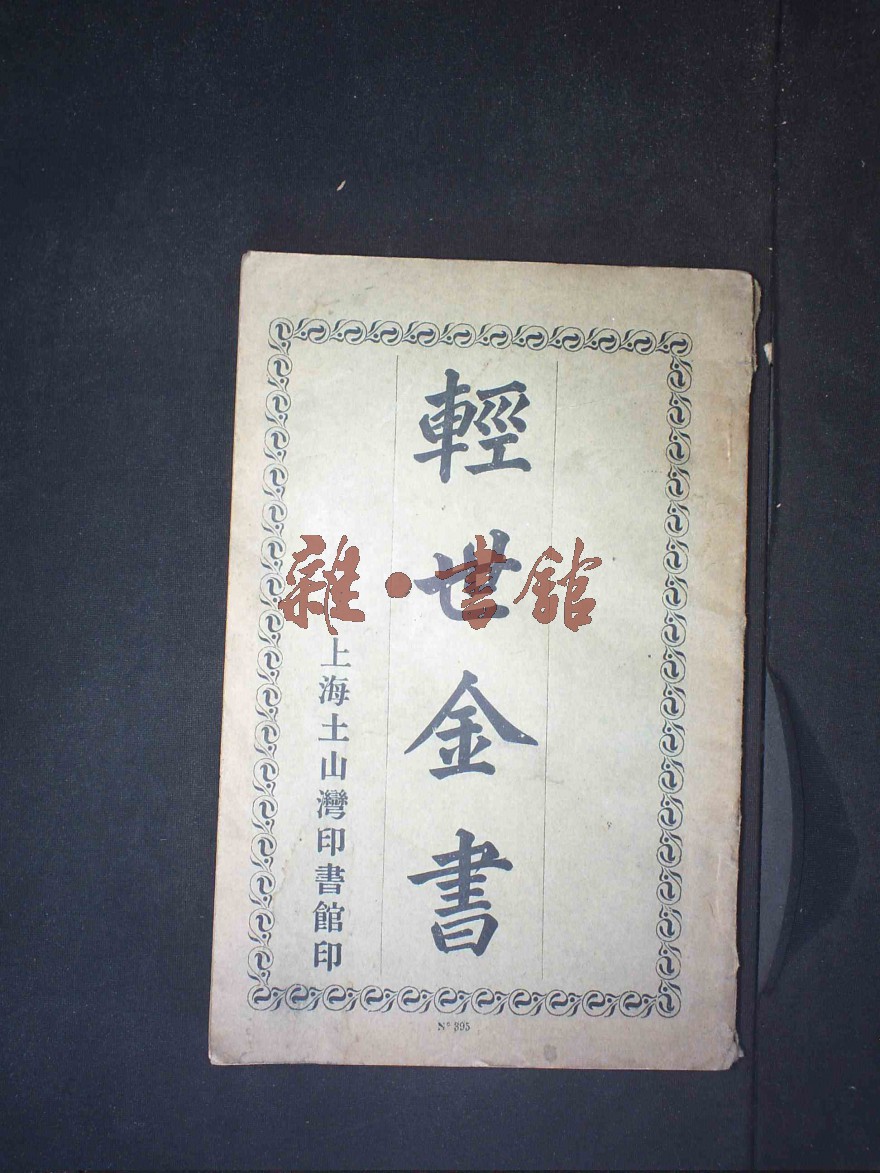 輕世金書
上海土山灣印書館印
雜·書館
N° 395